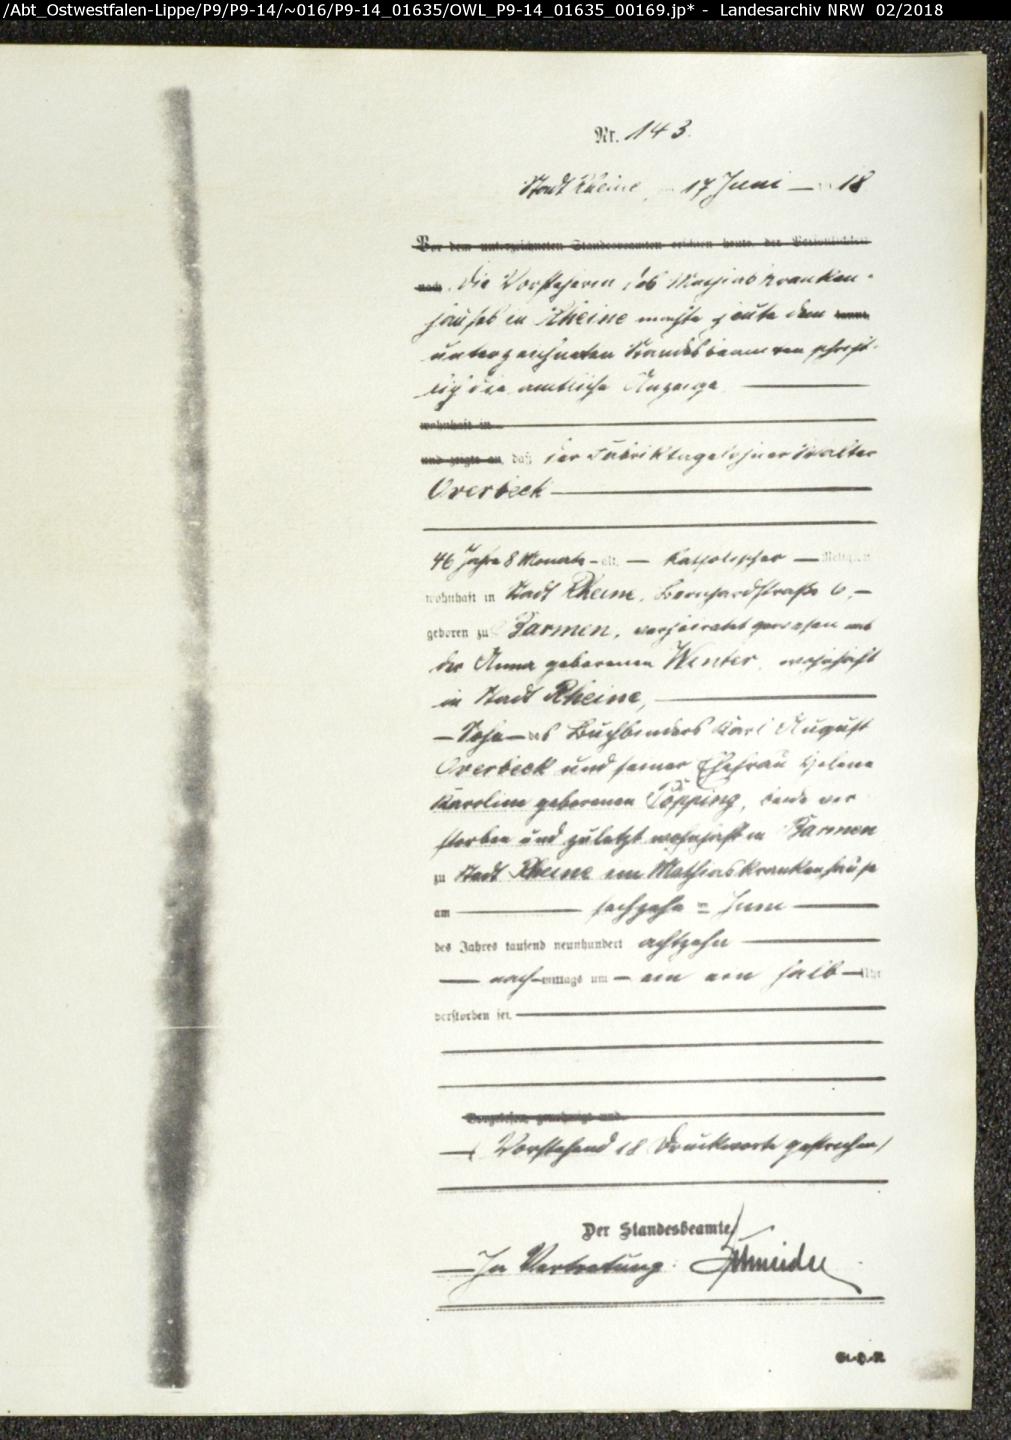 /Abt_Ostwestfalen-Lippe/P9/P9-14/~016/P9-14_01635/OWL_P9-14_01635_00169.jp* - Landesarchiv NRW 02/2018
Nr. 143.
Stadt Rheine, 17 Juni 18
Vor dem unterzeichneten Standesbeamten erschien heute, der Persönlichkeit
nach, die Vorsteherin des Mathiaskranken-
hauses in Rheine machte heute dem
unterzeichneten Standesbeamten schrift-
lich die amtliche Anzeige
wohnhaft in
und zeigte an, daß der Fabriktagelöhner Walter
Overbeck
46 Jahre 8 Monate alt, katholischer Religion
wohnhaft in Stadt Rheine, Bernhardstraße 6,
geboren zu Barmen, verheiratet gewesen mit
der Anna geborenen Winter, wohnhaft
in Stadt Rheine,
Sohn des Buchbinders Karl August
Overbeck und seiner Ehefrau Helene
Karoline geborenen Töpping, beide ver
storben und zuletzt wohnhaft in Barmen
zu Stadt Rheine im Mathiaskrankenhause
am sechzehn = Juni
des Jahres tausend neunhundert achtzehn
nachmittags um ein ein halb Uhr
verstorben sei.
Vorgelesen, genehmigt und
(Vorstehend 18 Druckworte gestrichen)
Der Standesbeamte
In Vertretung: Schneider